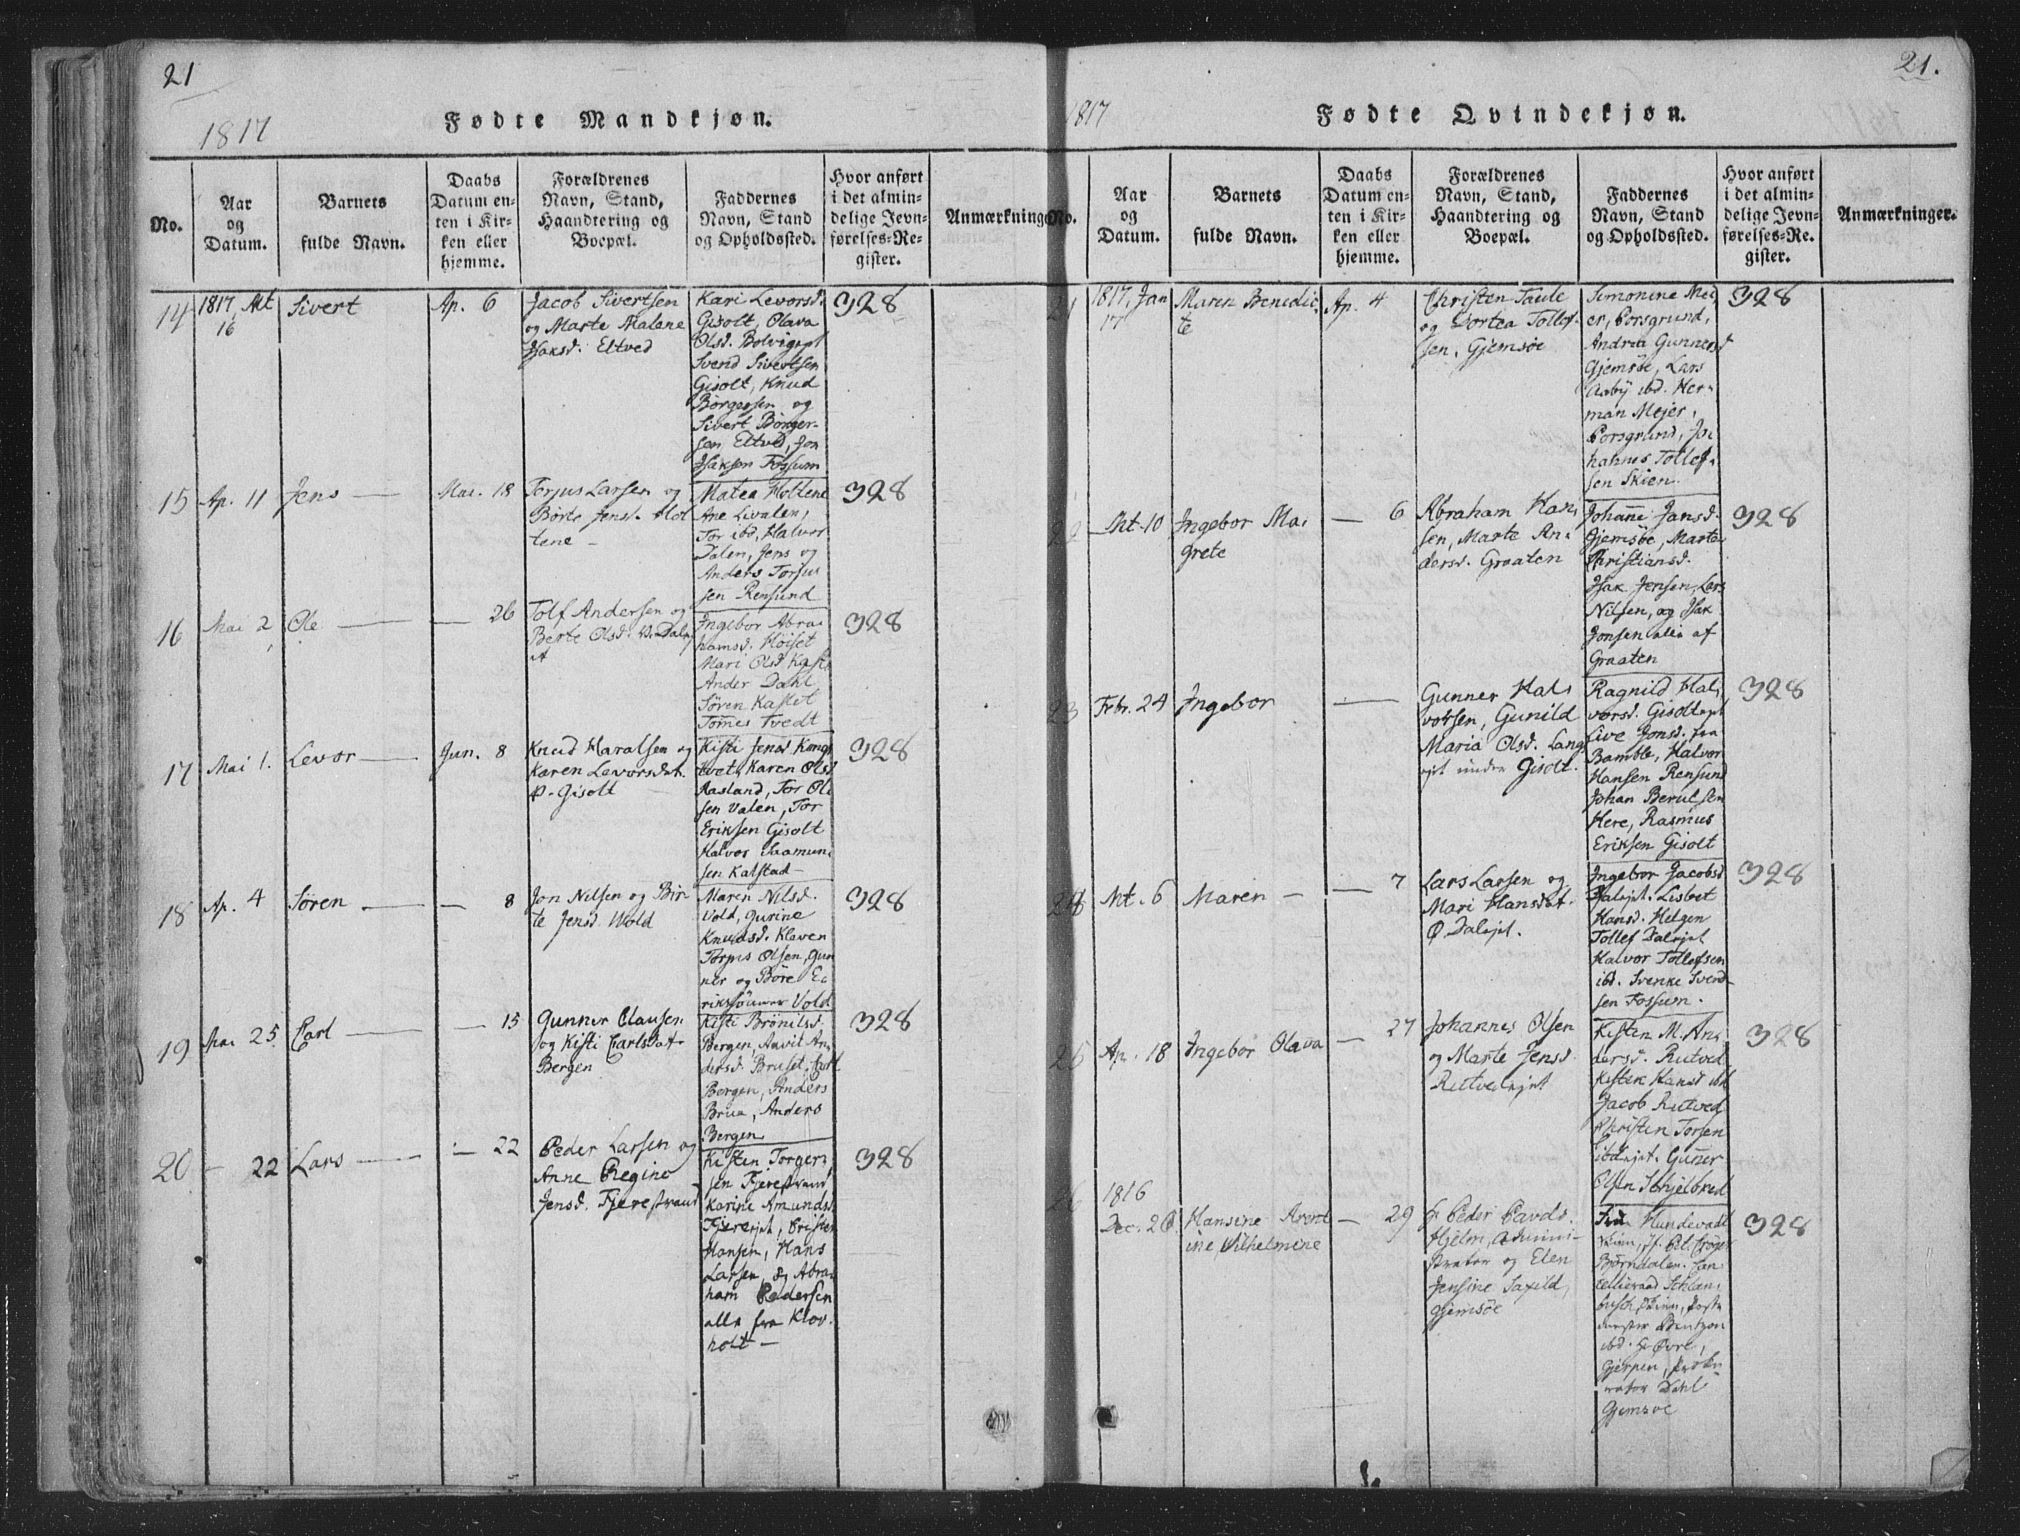 21
1817
Fødte Mandkjøn.
No.
Aar
og
Datum.
Barnets
fulde Navn.
Daabs
Datum en-
ten i Kir-
ken eller
hjemme.
Forældrenes
Navn, Stand,
Haandtering og
Boepæl.
Faddernes
Navn, Stand
og Opholdssted.
Hvor anført
i det almin-
delige Jevn-
førelses-Re-
gister.
Anmærkninge
14
1817,
16
Sivert
Ap. 6
Jacob Sivertsen
og Marte Malene
Isaksd. Eltved
Kari Levorsd.
Gisolt, Olava
Olsd. Bolvigejet
Svend Sivertsen
Gisolt, Knud
Børgessen og
Sivert Børger-
sen Eltved, Jon
Isaksen Fossum
328
15
Ap. 11
Jens
Mai. 18
Torjus Larsen og
Børte Jensd. Hol
tene
Matea Holtene
Ane Livalen,
Tor ibd, Halvor
Dalen, Jens og
Anders Torju
sen Rensund
328
16
Mai 2
Ole
26
Tolf Andersen og
Berte Olsd.
Ingebor Abra
hamsd. Høiset
Mari Olsd
Ander Dahl
Søren Kastet
Tomes Tvedt
328
17
Mai 1.
Levor
Jun. 8
Knud Haralsen og
Karen Levorsdat.
Gisolt
Kisti Jensd Kongs
tvet, Karen Olsd
Aasland, Tor Ol
sen Valen, Tor
Eriksen Gisolt
Halvor Saamun
sen Kalstad
328
18
Ap. 4
Søren
8
Jon Nilsen og Bir
te Jensd. Wold
Maren Nilsd.
Vold, Gurine
Knudsd. Kleven
Torjus Olsen, Gun
ner og Børe E
riksönner Vold
328
19
Mai 25
Carl
15
Gunner Clausen
og Kisti Carlsdat.
Bergen
Kisti Brönilsd.
Bergen, Aavit An
dersd. Bruset, Carl
Bergen, Anders
Brua, Anders
Bergen
328
20
22
Lars
22
Peder Larsen og
Anne Regine
Jensd. Fjerestrand
Kisten Torger
sen Fjerestrand
Karine Amundsd.
Fjereejet, Cristen
Hansen, Hans
Larsen, og Abra
ham Pedersen
alle fra Klov
holt
328
21.
1817
Fødte Qvindekjøn.
No.
Aar
og
Datum.
Barnets
fulde Navn.
Daabs
Datum en-
ten i Kir-
ken eller
hjemme.
Forældrenes
Navn, Stand,
Haandtering og
Boepæl.
Faddernes
Navn, Stand
og Opholdssted.
Hvor anført
i det almin-
delige Jevn-
førelses-Re-
gister.
Anmærkninger.
21
1817, Jan
17
Maren Benedic
te
Ap. 4
Christen Taule
og Dortea Tollef-
sen, Gjemsøe
Simonine Mei
er, Porsgrund,
Andrea Gunnersd
Gjemsöe, Lars
Aaby ibd. Her-
man Mejer,
Porsgrund, Jo
hannes Tollef-
sen Skien.
328
22
Mt. 10
Ingebor Mar
grete
6
Abraham Han
sen, Marte An
dersd. Graaten
Johanne Jansd.
Gjemsöe, Marte
Christiansd.
Isak Jensen, Lars
Nilsen, og Isak
Jonsen alle af
Graaten
328
23
Febr. 24
Ingebor
Gunner Hals
vorsen, Gunild
Maria Olsd. Lang
ejet under Gisolt.
Ragnild Hal
vorsd. Gisoltejet
Live Jonsd. fra
Bamble, Halvor
Hansen Rensund
Johan Berulsen
Here, Rasmus
Eriksen Gisolt
328
24
Mt. 6
Maren
7
Lars Larsen og
Mari Hansdat.
Ø. Dalejet.
Ingebor Jacobsd
Dalejet. Lisbet
Hansd. Helgen
Tollef Dalejet
Halvor Tollefsen
ibd. Svenke Svend-
sen Fossum.
328
25
Ap. 18
Ingebor Olava
27
Johannes Olsen
og Marte Jensd.
Rutvedejet
Kisten M. An
dersd. Rutved
Kisten Hansd ibd
Jacob Rutved
Christen Torsen
ibd. Gunner
Olsen Schjelbred
328
26
1816
Dec. 26
Hansine Arent
ine Vilhelmine
29
Hr Peder Pavels
Hjelm, admini-
strator og Elen
Jensine Saxild,
Gjemsöe
Hundevadt
Skien,
Björndalen. Can
celliraad Schlan
busch Skien, Post
mester Bentzon
ibd. Hr Øvre,
Gjerpen, Proku
rator Dahl
Gjemsøe
328